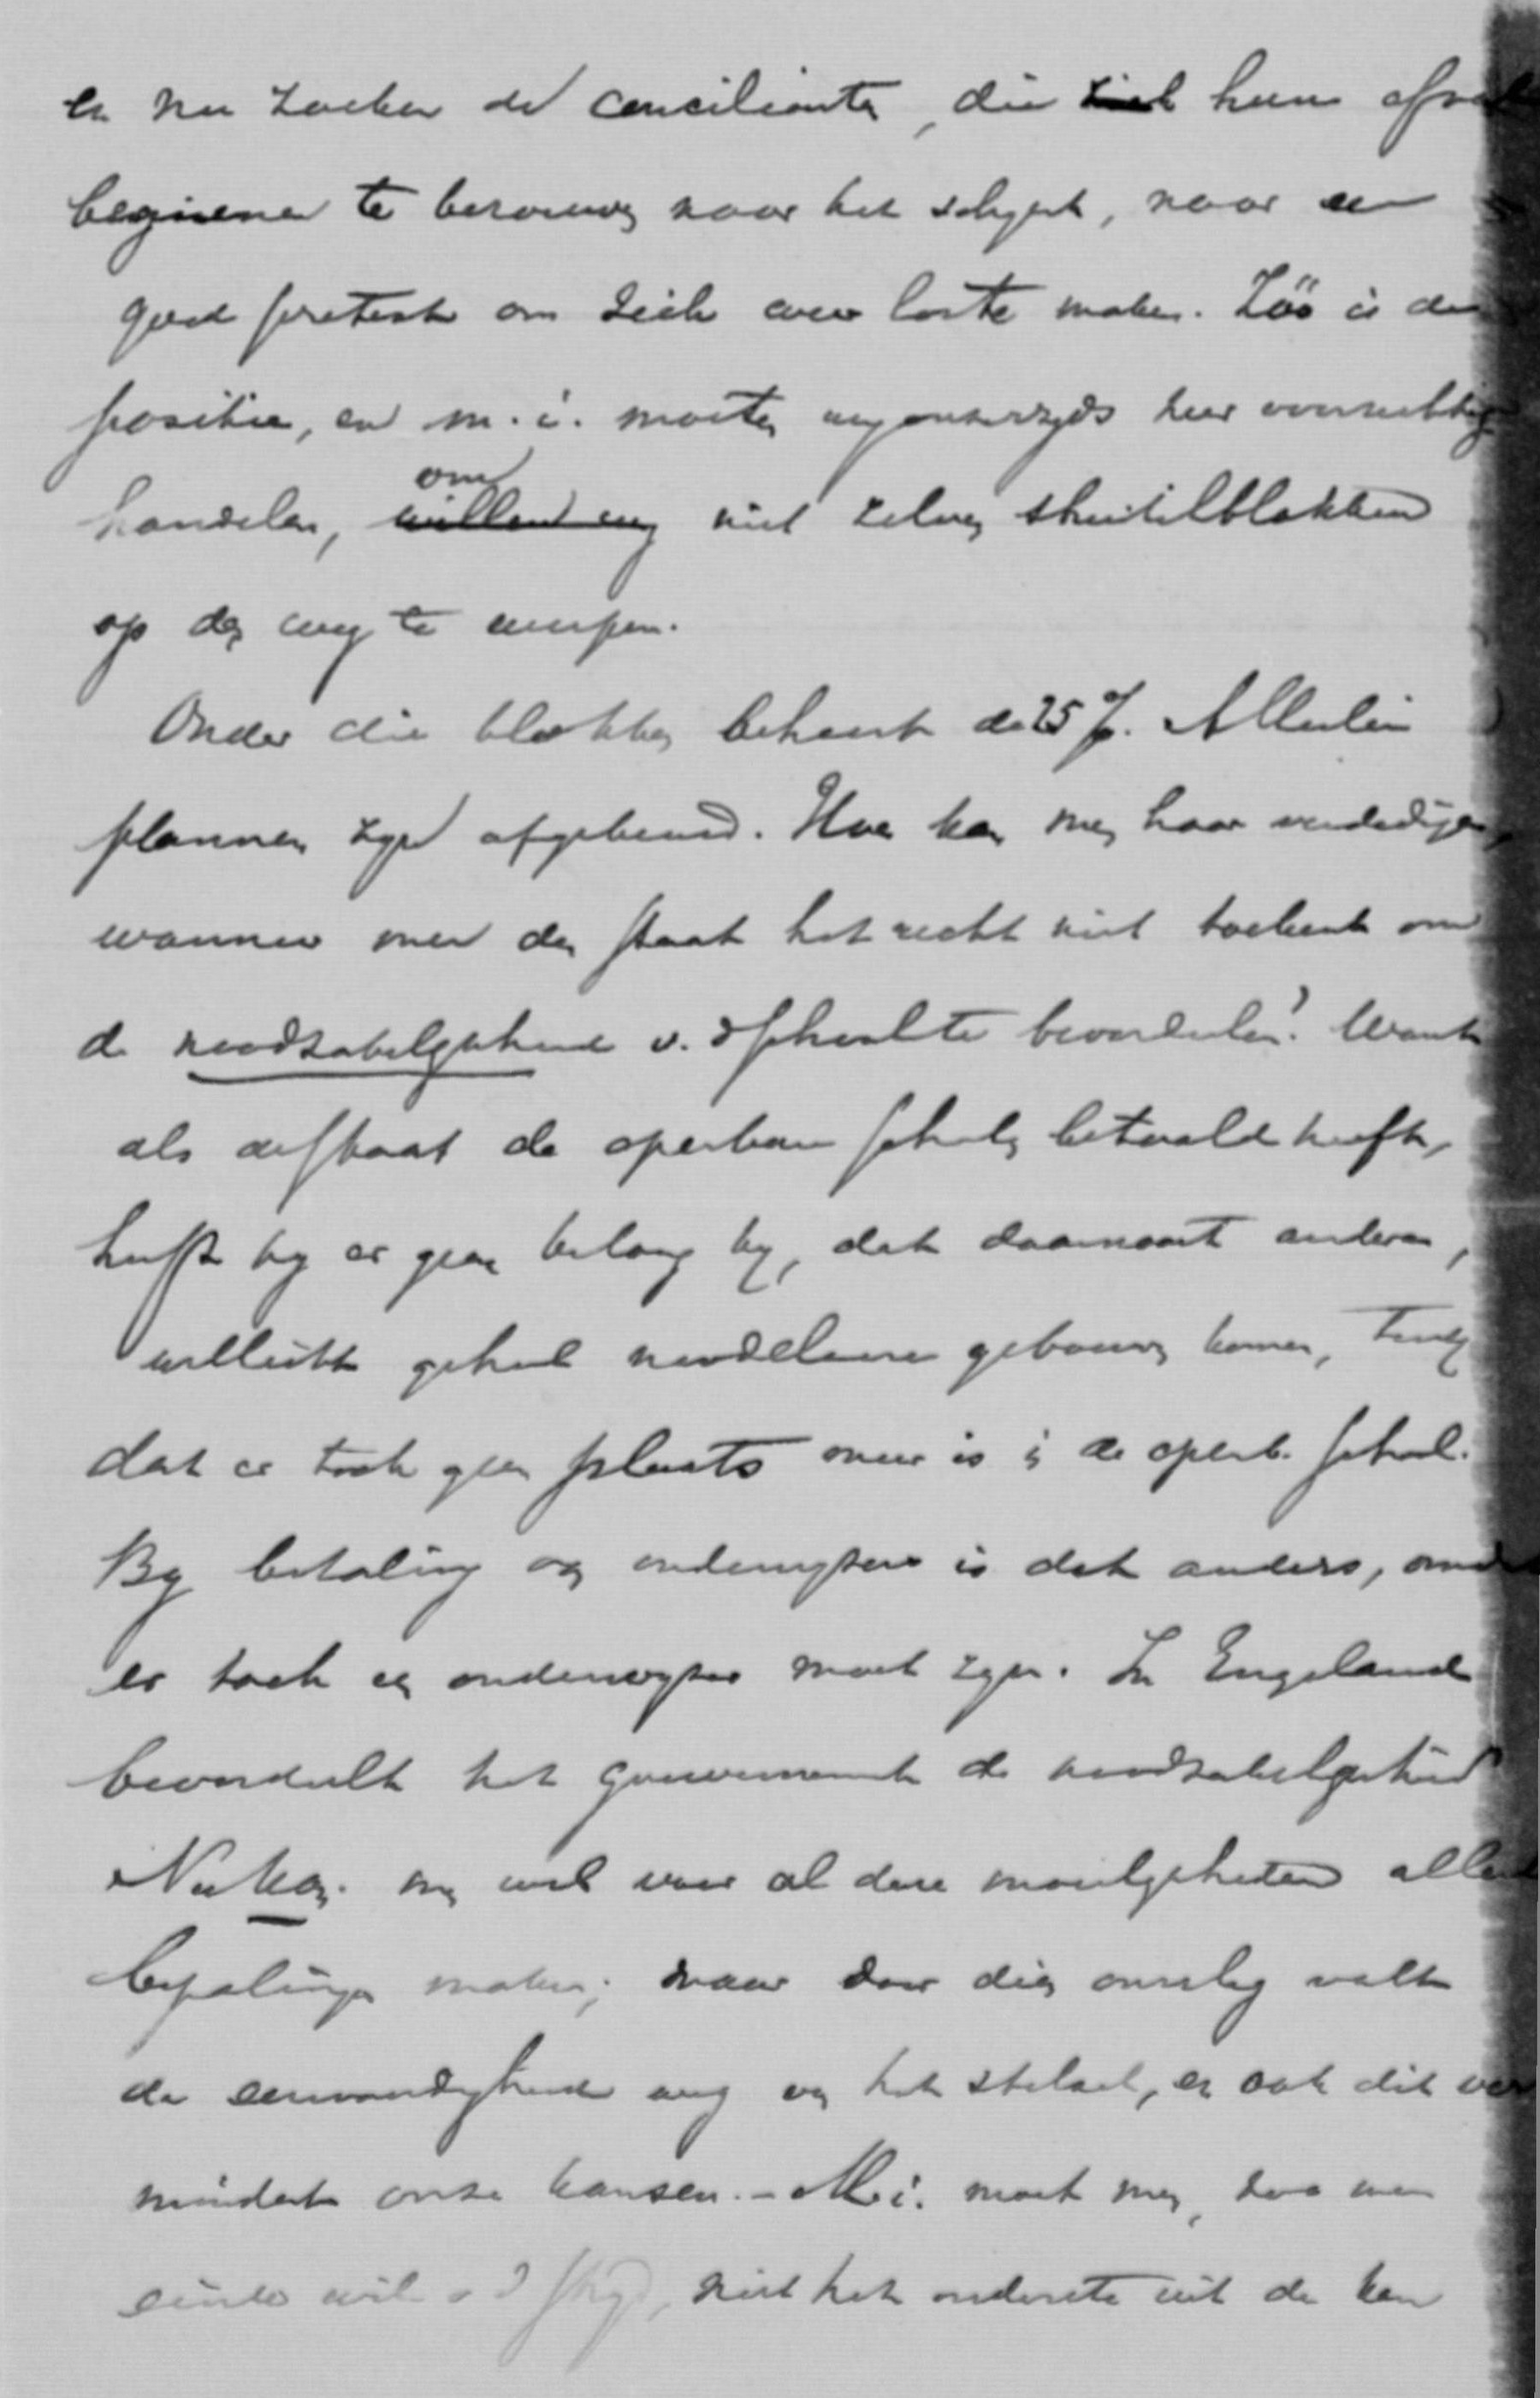 en nu zoeken de conciliante, die zich hun
beginnen te berouwen naar het schijnt, naar een
goed pretext om zich weer los te maken. Zóó is de
positie, en m.i. moeten wij onzerzijds zeer voorzichtig
handelen, om niet zelven struikelblokken
op den weg te werpen.
Onder die blokken behoort de 25 %. Allerlei
plannen zijn afgekeurd. Hoe kan men haar verdedigen,
wanneer men den staat het recht niet toekent om
de noodzakelijkheid v. d school te beoordeelen? Want
als de staat de openbare scholen betaald heeft,
heeft hij er geen belang bij, dat daarnaast andere,
wellicht geheel noodeloze gebouwen komen, tenzij
dat er toch geen plaats meer is in de openb. school.
By betaling van onderwijzers is dat anders, omdat
er toch een onderwijzer moet zijn. In Engeland
beoordeelt het gouvernement de noodzakelijkheid
Nu kan men wel voor al deze moeilijkheden
bepalingen maken; maar door dien omslag valt
de eenvoudigheid weg van het stelsel, en ook dit ver
mindert onze kansen. – M.i. moet men, zoo men
einde wil v d strijd, niet het onderste uit de kan